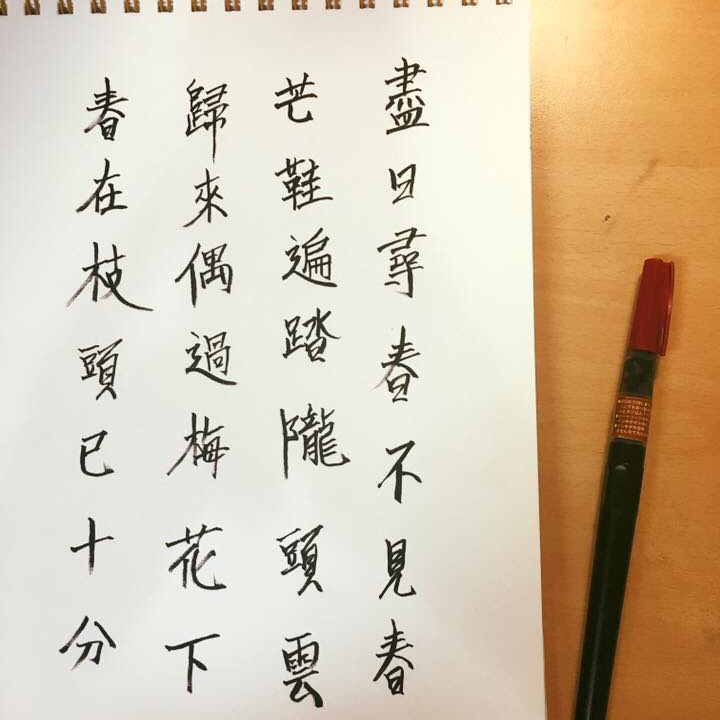 盡日尋春不見春
芒鞋遍踏隴頭雲
歸來偶過梅花下
春在枝頭已十分